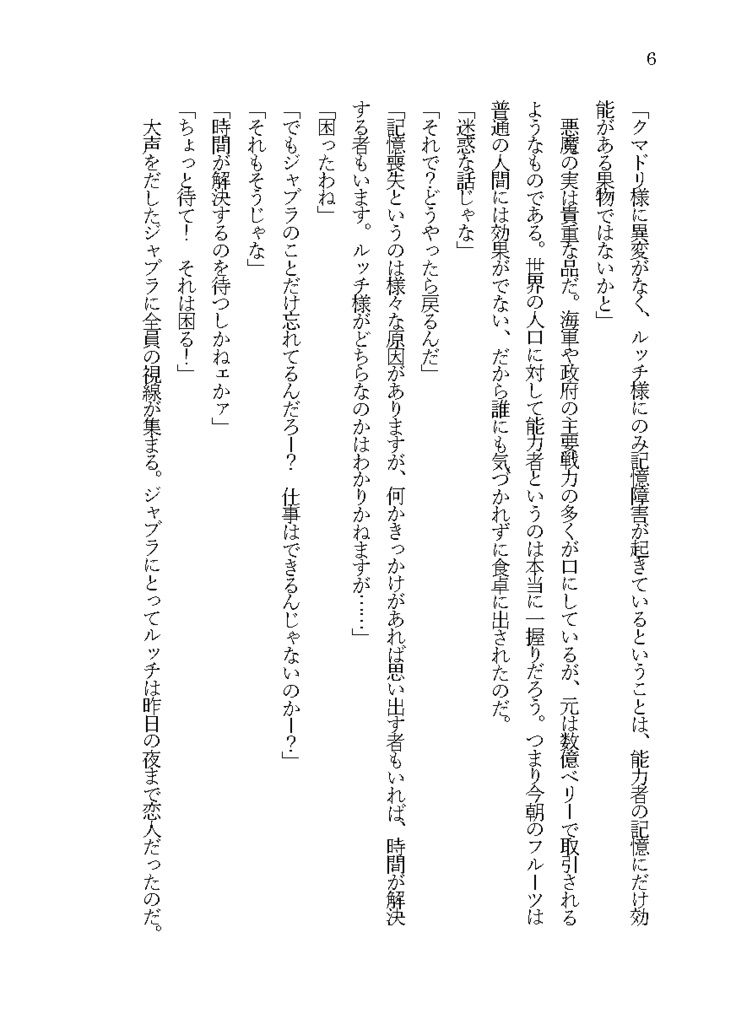 6
「クマドリ様に異変がなく、ルッチ様にのみ記憶障害が起きているということは、能力者の記憶にだけ効
能がある果物ではないかと」
　悪魔の実は貴重な品だ。海軍や政府の主要戦力の多くが口にしているが、元は数億ベリーで取引される
ようなものである。世界の人口に対して能力者というのは本当に一握りだろう。つまり今朝のフルーツは
普通の人間には効果がでない、だから誰にも気づかれずに食卓に出されたのだ。
「迷惑な話じゃな」
「それで？どうやったら戻るんだ」
「記憶喪失というのは様々な原因がありますが、何かきっかけがあれば思い出す者もいれば、時間が解決
する者もいます。ルッチ様がどちらなのかはわかりかねますが……」
「困ったわね」
「でもジャブラのことだけ忘れてるんだろー？　仕事はできるんじゃないのかー？」
「それもそうじゃな」
「時間が解決するのを待つしかねェかァ」
「ちょっと待て！　それは困る！」
　大声をだしたジャブラに全員の視線が集まる。ジャブラにとってルッチは昨日の夜まで恋人だったのだ。